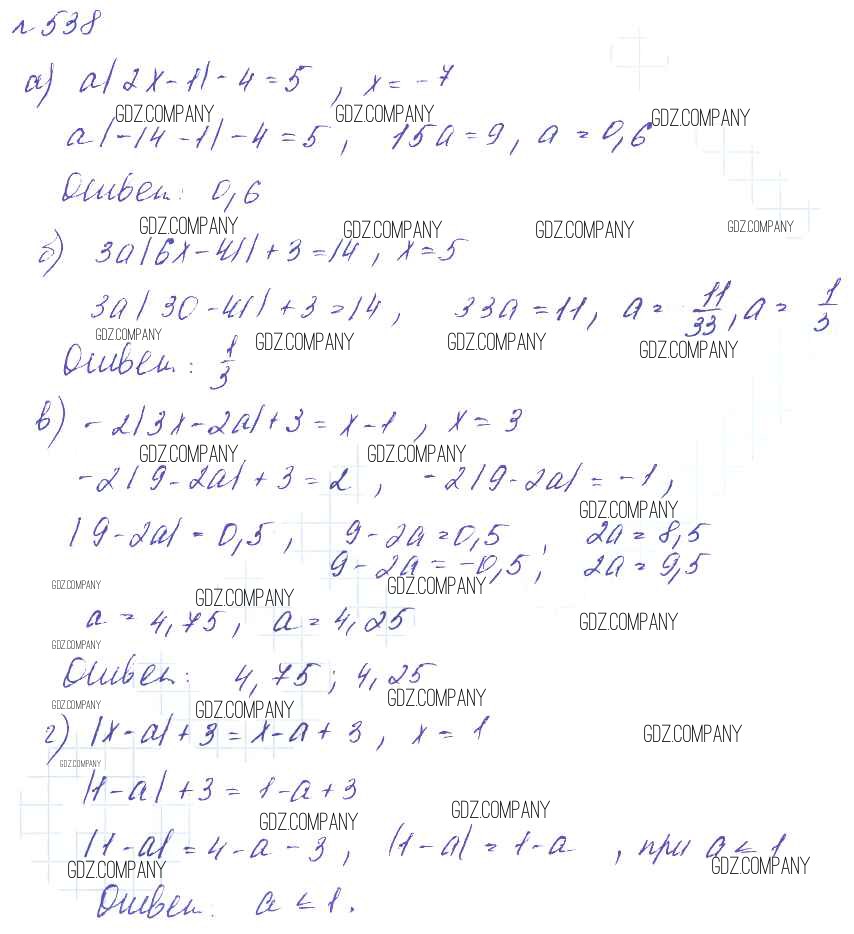 № 538
а) a|2x-1|-4=5, x=-7
GDZ.COMPANY GDZ.COMPANY GDZ.COMPANY
a|-14-1|-4=5, 15a=9, a=0,6
Ответ: 0,6
GDZ.COMPANY GDZ.COMPANY GDZ.COMPANY GDZ.COMPANY
б) 3a|6x-41|+3=14, x=5
3a|30-41|+3=14, 33a=11, a=11/33, a=1/3
GDZ.COMPANY GDZ.COMPANY GDZ.COMPANY GDZ.COMPANY
Ответ: 1/3
в) -2|3x-2a|+3=x-1, x=3
GDZ.COMPANY GDZ.COMPANY
-2|9-2a|+3=2, -2|9-2a|=-1,
GDZ.COMPANY
|9-2a|=0,5, 9-2a=0,5, 2a=8,5
9-2a=-0,5; 2a=9,5
GDZ.COMPANY GDZ.COMPANY GDZ.COMPANY
a=4,75, a=4,25
GDZ.COMPANY
GDZ.COMPANY
Ответ: 4,75; 4,25
GDZ.COMPANY GDZ.COMPANY GDZ.COMPANY
г) |x-a|+3=x-a+3, x=1
GDZ.COMPANY
GDZ.COMPANY
|1-a|+3=1-a+3
GDZ.COMPANY GDZ.COMPANY
|1-a|=4-a-3, |1-a|=1-a, при a≤1
GDZ.COMPANY GDZ.COMPANY
Ответ: a≤1.